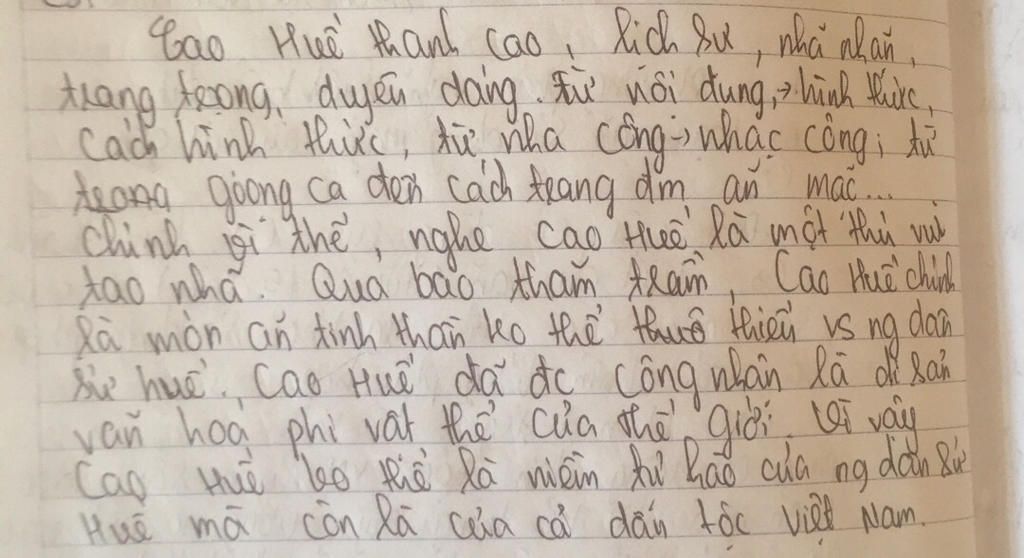 Cao Huế thanh cao, lịch sự, nhã nhặn,
trang trọng, duyên dáng. Từ nôi dung,→hình thức,
Cách hình thức, từ nha công→nhạc công; từ
trong gioọng ca đến cách trang đm ăn mặc...
Chính vì thế, nghe Cao Huế là một thú vui
tao nhã. Qua bao thăm trầm, Cao Huế chính
là mòn ăn tinh thần ko thể thuô thiếu vs ng dân
sứ huế., Cao Huế đã đc Công nhận là di sản
văn hoá phi vât thể của thế giới. Vì vây
Cao Huế ko thể là niềm tự hào của ng dân sứ
Huế mà còn là của cả dân tộc Việt Nam.